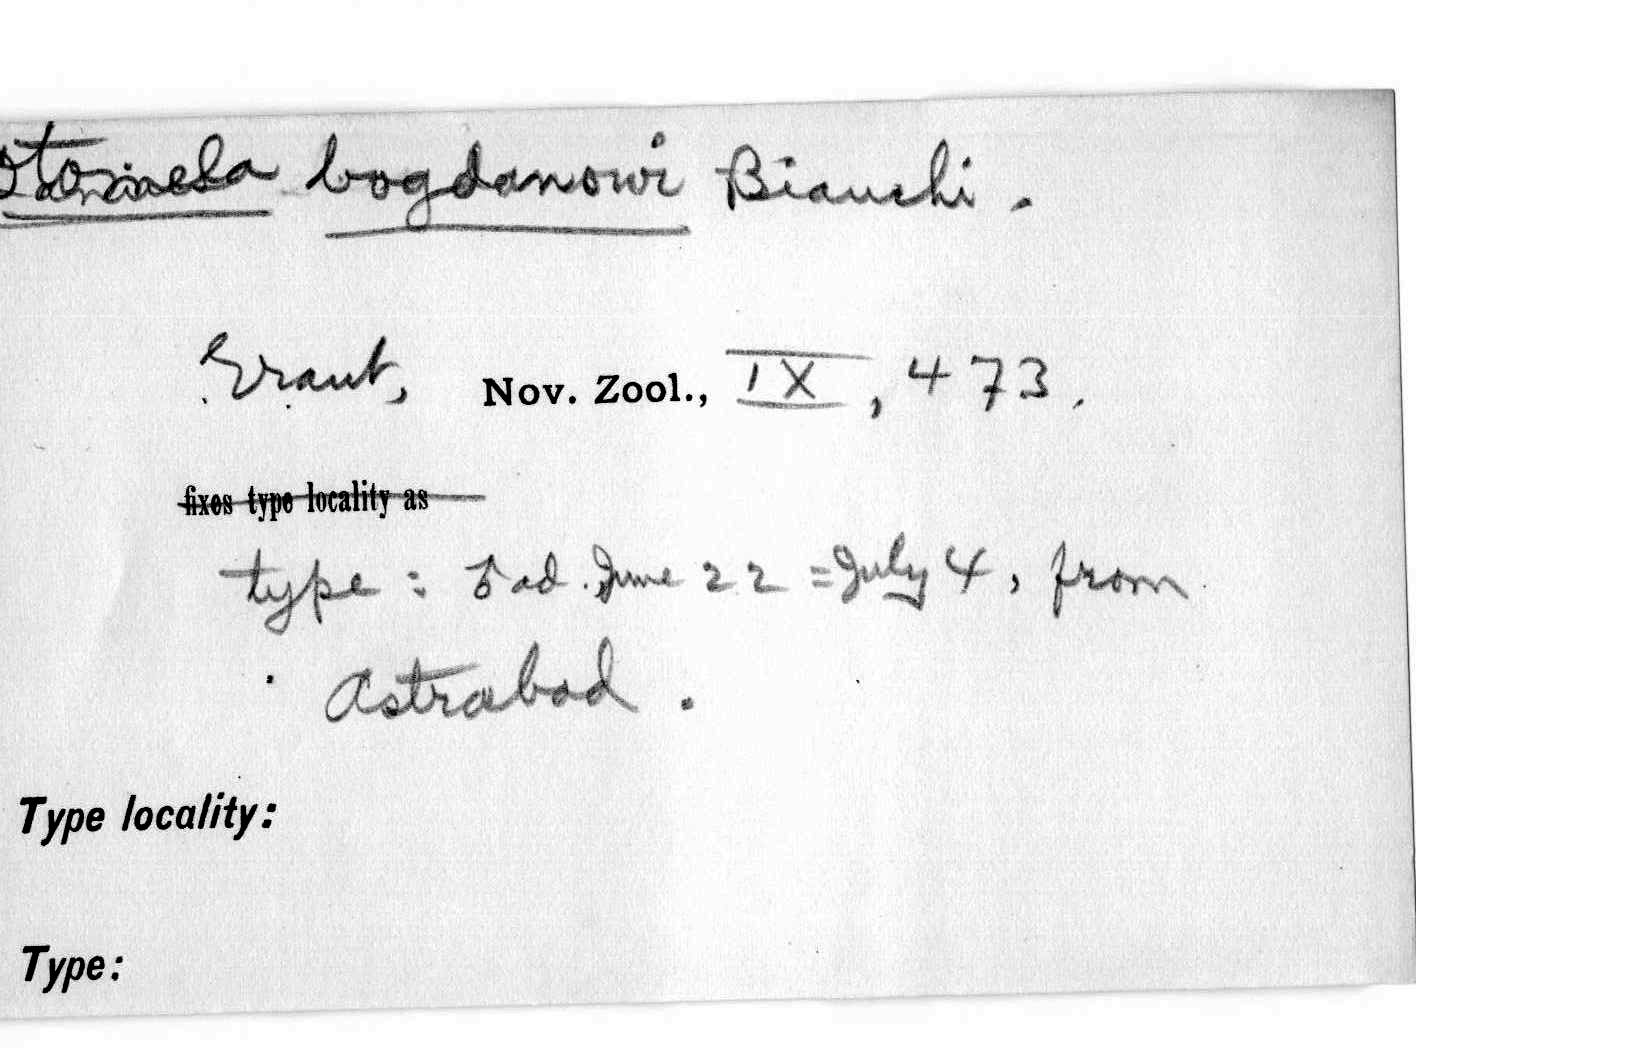 Otomela bogdanowi Bianchi.
Grant, Nov. Zool., IX, 473.
fixes type locality as
type: ♂ ad. June 22 = July 4, from
Astrabad.
Type locality:
Type: